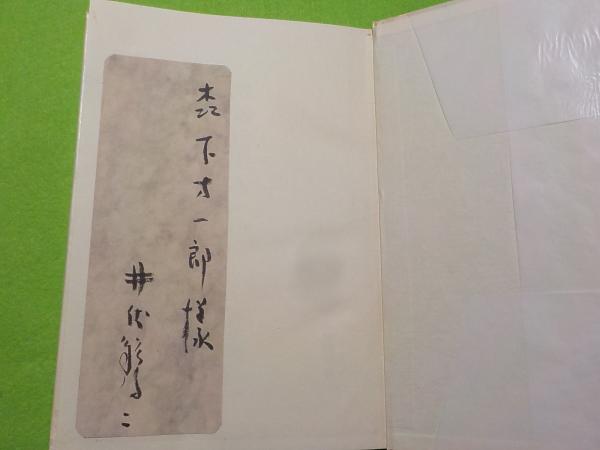 森下才一郎様
井伏鱒二